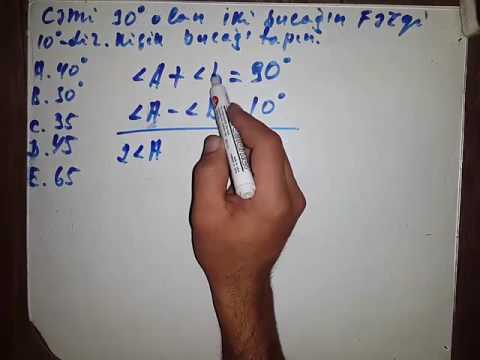 Cəmi 90° olan iki bucağın Fərqi
10°-dir. Kiçik bucağı tapın.
A. 40°
B. 30°
C. 35
D. 45
E. 65
∠A + ∠b = 90°
∠A - ∠b 10°
2∠A